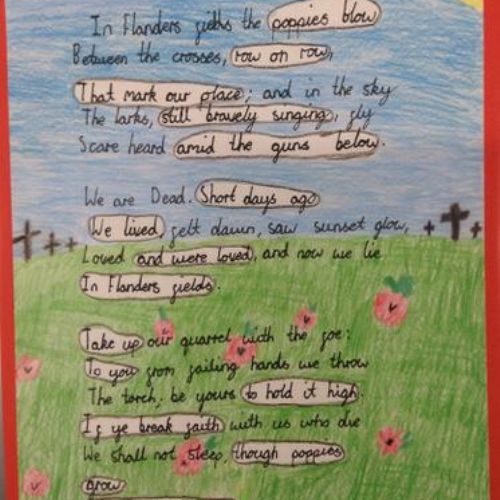 In Flanders fields the poppies blow
Between the crosses, row on row,
That mark our place; and in the sky
The larks, still bravely singing, fly
Scare heard amid the guns below.
We are Dead. Short days ago
We lived, felt dawn, saw sunset glow,
Loved and were loved, and now we lie
In Flanders fields.
Take up our quarrel with the foe:
To you from failing hands we throw
The torch; be yours to hold it high.
If ye break faith with us who die
We shall not sleep, though poppies
grow